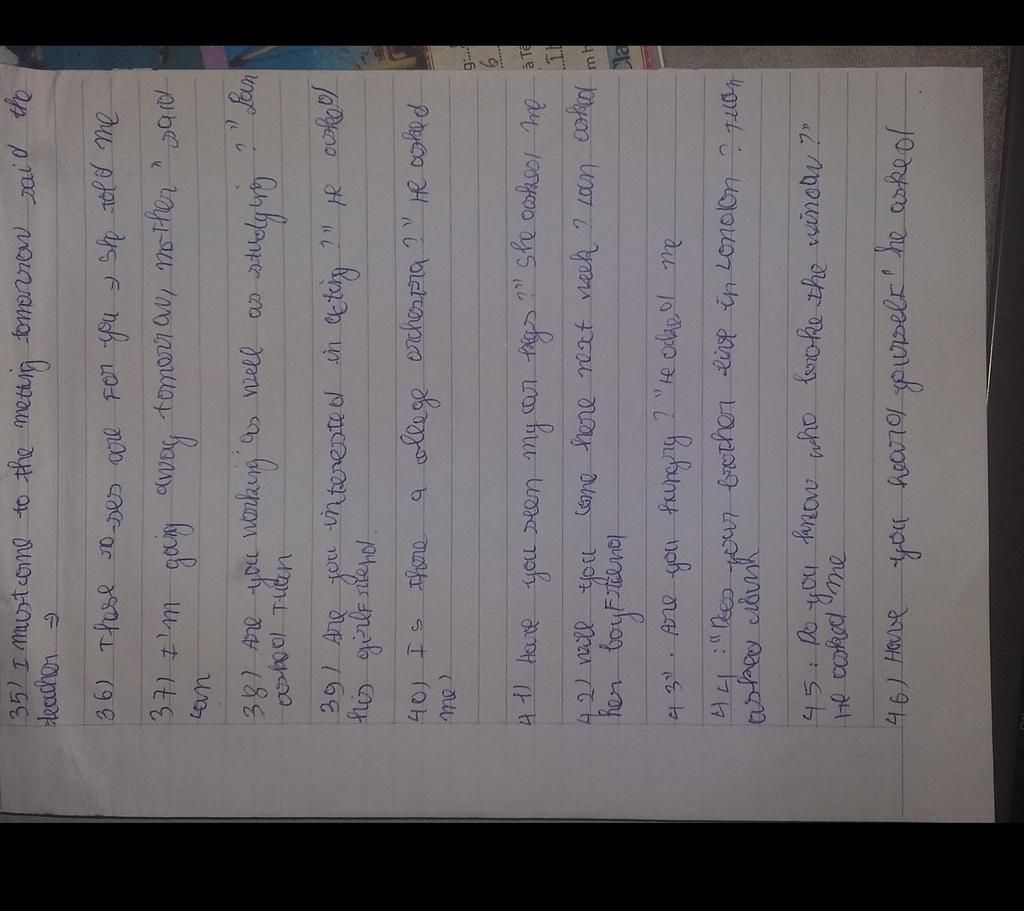 35) I must come to the metting tomorrow said the
teacher ⇒
36) These roses are For you → she told me
37) I'm going away tomorrow, mother" said
Lan
38) Are you working as well as studying ?" Lan
asked Tuan
39) Are you interested in acting ?" He asked
his girlFriend.
40) Is there a college orchestra ?" He asked
me)
41) Have you seen my car keys ?" She asked me
42) will you come here next week ? Lan asked
her boyFriend
43) . Are you hungry ? "He asked me
44 : "Does your brother live in London ? Tuan
asked
45 : Do you know who broke the window ?"
He asked me
46) Have you heard yourself" he asked
g:...
6
à Tê
1
m h